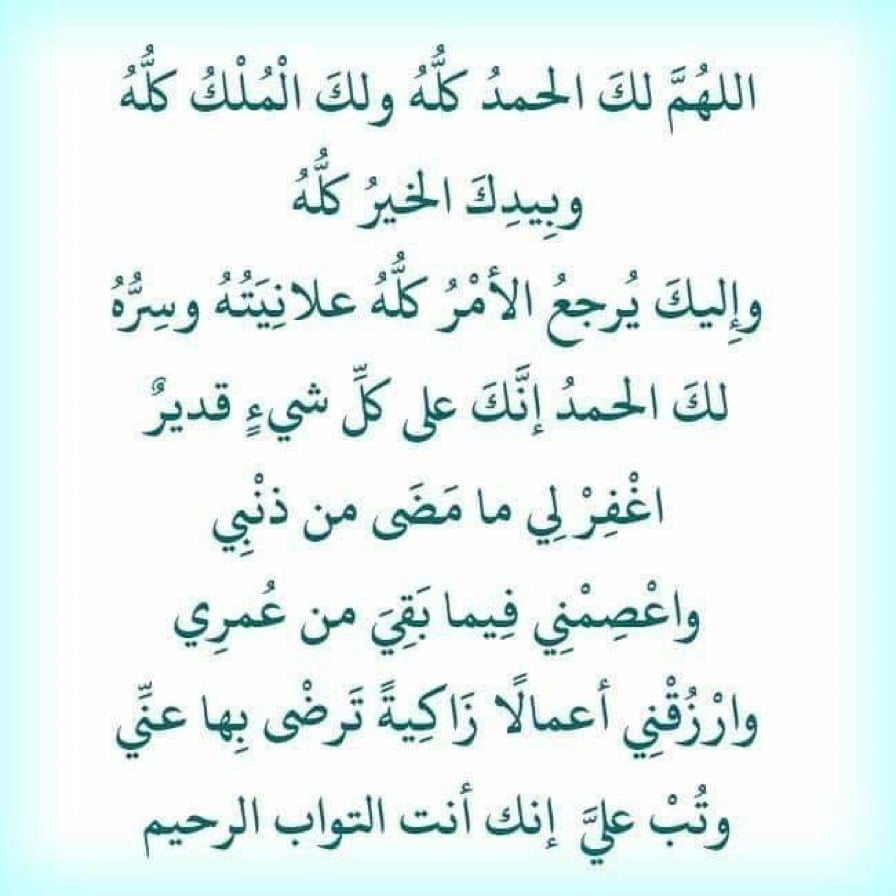 اللهُمَّ لكَ الحمدُ كلُّهُ ولكَ الْمُلْكُ كلُّهُ
وبِيدِكَ الخيرُ كلُّهُ
وإِليكَ يُرجعُ الأمْرُ كلُّهُ علانِيَتُهُ وسِرُّهُ
لكَ الحمدُ إنَّكَ على كلِّ شيءٍ قديرٌ
اغْفِرْ لِي ما مَضَى من ذنْبِي
واعْصِمْنِي فِيما بَقِيَ من عُمرِي
وارْزُقْنِي أعمالًا زَاكِيةً تَرضْى بِها عنِّي
وتُبْ عليَّ إنك أنت التواب الرحيم